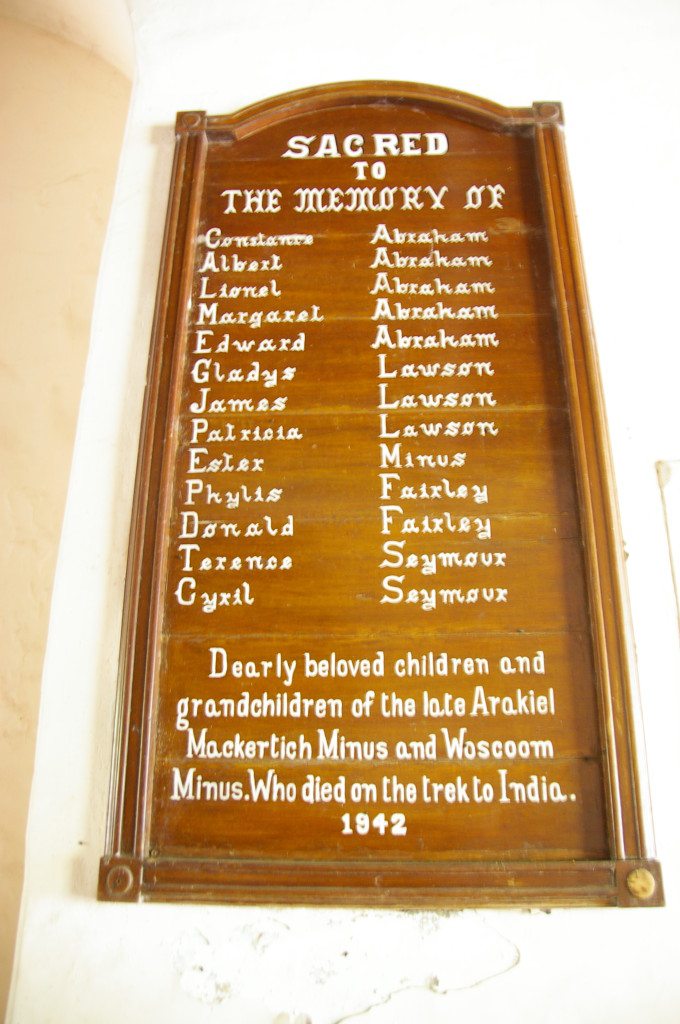 SACRED
TO
THE MEMORY OF
Constance Abraham
Albert Abraham
Lionel Abraham
Margaret Abraham
Edward Abraham
Gladys Lawson
James Lawson
Patricia Lawson
Ester Minus
Phylis Fairley
Donald Fairley
Terence Seymour
Cyril Seymour
Dearly beloved children and
grandchildren of the late Arakiel
Mackertich Minus and Woscoom
Minus. Who died on the trek to India.
1942